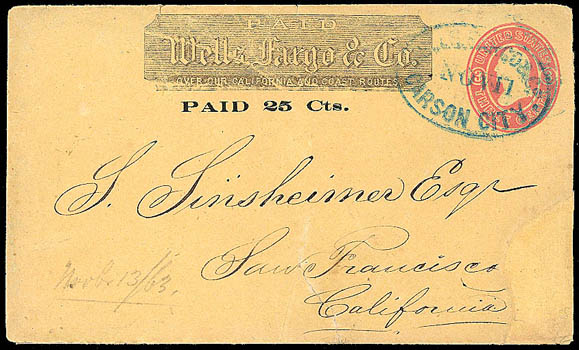 PAID
Wells, Fargo & Co.
OVER OUR CALIFORNIA AND COAST ROUTES
PAID 25 Cts.
UNITED STATES
NOV 17
CARSON CITY
S. Sinsheimer Esqr
San Francisco
California
Novb. 13/63.